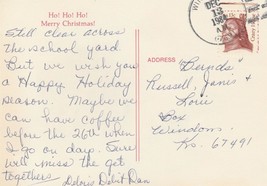 Ho! Ho! Ho!
Merry Christmas!
Still clear across
the school yard.
But we wish you
a Happy Holiday
season. Maybe we
can have coffee
before the 26th when
I go on day. Sure
will miss the get
togethers.
DEC
13
ADDRESS
Russell, Janis &
Lorie
Box
Windom,
Ks. 67491